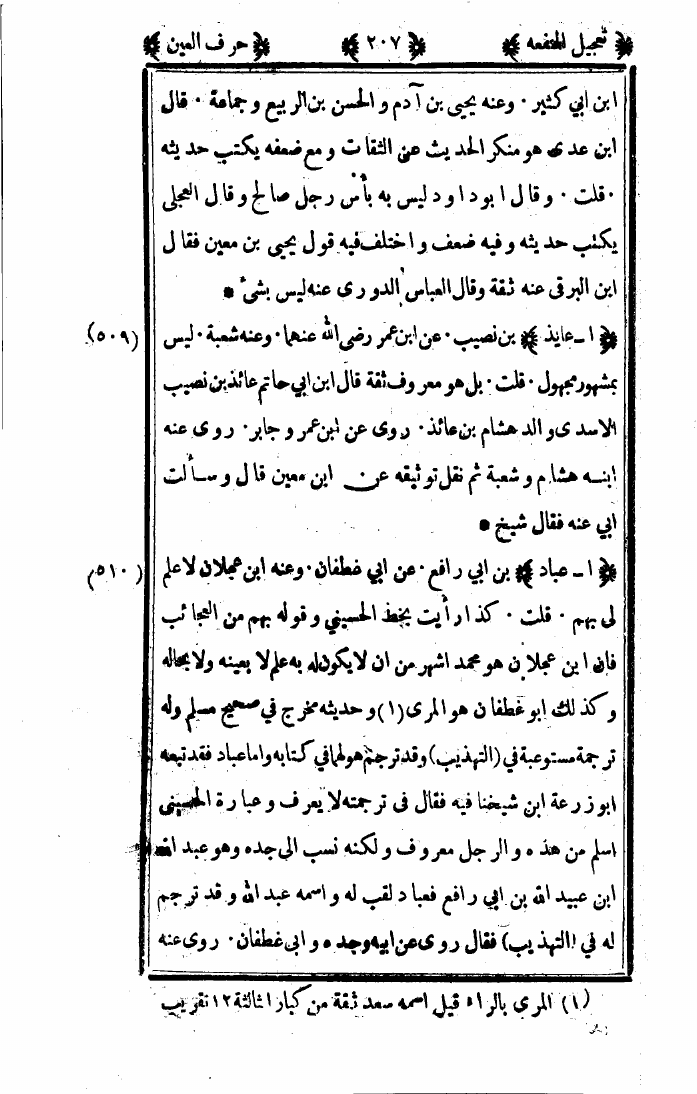 ﴿تعجيل المنفعه﴾ ﴿٢٠٧﴾ ﴿حرف العين﴾
ابن ابي كثير · وعنه يحيى بن آدم و الحسن بن الربيع و جماعة · قال
ابن عدى هو منكر الحديث عن الثقات و مع ضعفه يكتب حديثه
· قلت · و قال ابو داود ليس به بأس رجل صالح و قال العجلى
يكتب حديثه و فيه ضعف و اختلف فيه قول يحيى بن معين فقال
ابن البرقى عنه ثقة وقال العباس الدورى عنه ليس بشئ *
﴿ا - عايذ﴾ بن نصيب · عن ابن عمر رضى الله عنهما · وعنه شعبة · ليس (٥٠٩)
بمشهور مجهول · قلت · بل هو معروف ثقة قال ابن ابي حاتم عائذ بن نصيب
الاسدى والد هشام بن عائذ · روى عن ابن عمر و جابر · روى عنه
ابنه هشام و شعبة ثم نقل توثيقه عن ابن معين قال و سألت
ابي عنه فقال شيخ *
﴿ا - عباد﴾ بن ابي رافع · عن ابي غطفان · وعنه ابن عجلان لا علم (٥١٠)
لى بهم · قلت · كذا رأيت بخط الحسيني و قوله بهم من العجائب
فان ابن عجلان هو محمد اشهر من ان لا يكون له به علم لا بعينه ولا بحاله
و كذلك ابو غطفان هو المرى (١) و حديثه مخرج في صحيح مسلم وله
ترجمة مستوعبة في (التهذيب) وقد ترجم هو لهما في كتابه واما عباد فقد تبعه
ابوزرعة ابن شيخنا فيه فقال فى ترجمته لا يعرف و عبارة الحسينى
اسلم من هذه و الرجل معروف و لكنه نسب الى جده وهو عبد الله
ابن عبيد الله بن ابي رافع فعباد لقب له و اسمه عبد الله و قد ترجم
له في (التهذيب) فقال روى عن ابيه وجده و ابى غطفان · روى عنه
(١) المرى بالراء قيل اسمه سعد ثقة من كبار الثالثة ١٢ تقريب